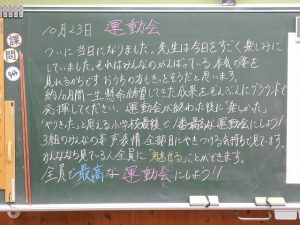 10月23日 運動会
ついに当日になりました。先生は今日をすごく楽しみに
していました。それはみんなのがんばっている本気の姿を
見れるからです。おうちの方もきっとそうだと思います。
約1カ月間一生懸命練習してきた成果をぞんぶんにグラウンドで
発揮してください。運動会が終わった後に「楽しかった」
「やりきった」と思える小学校最後で1番最高な運動会にしよう!
3組のみんなの事 表情 全部目にやきつける気持ちで見てます。
みんななら見ている人全員に「魅せる」ことができます。
全員で最高な運動会にしよう!!